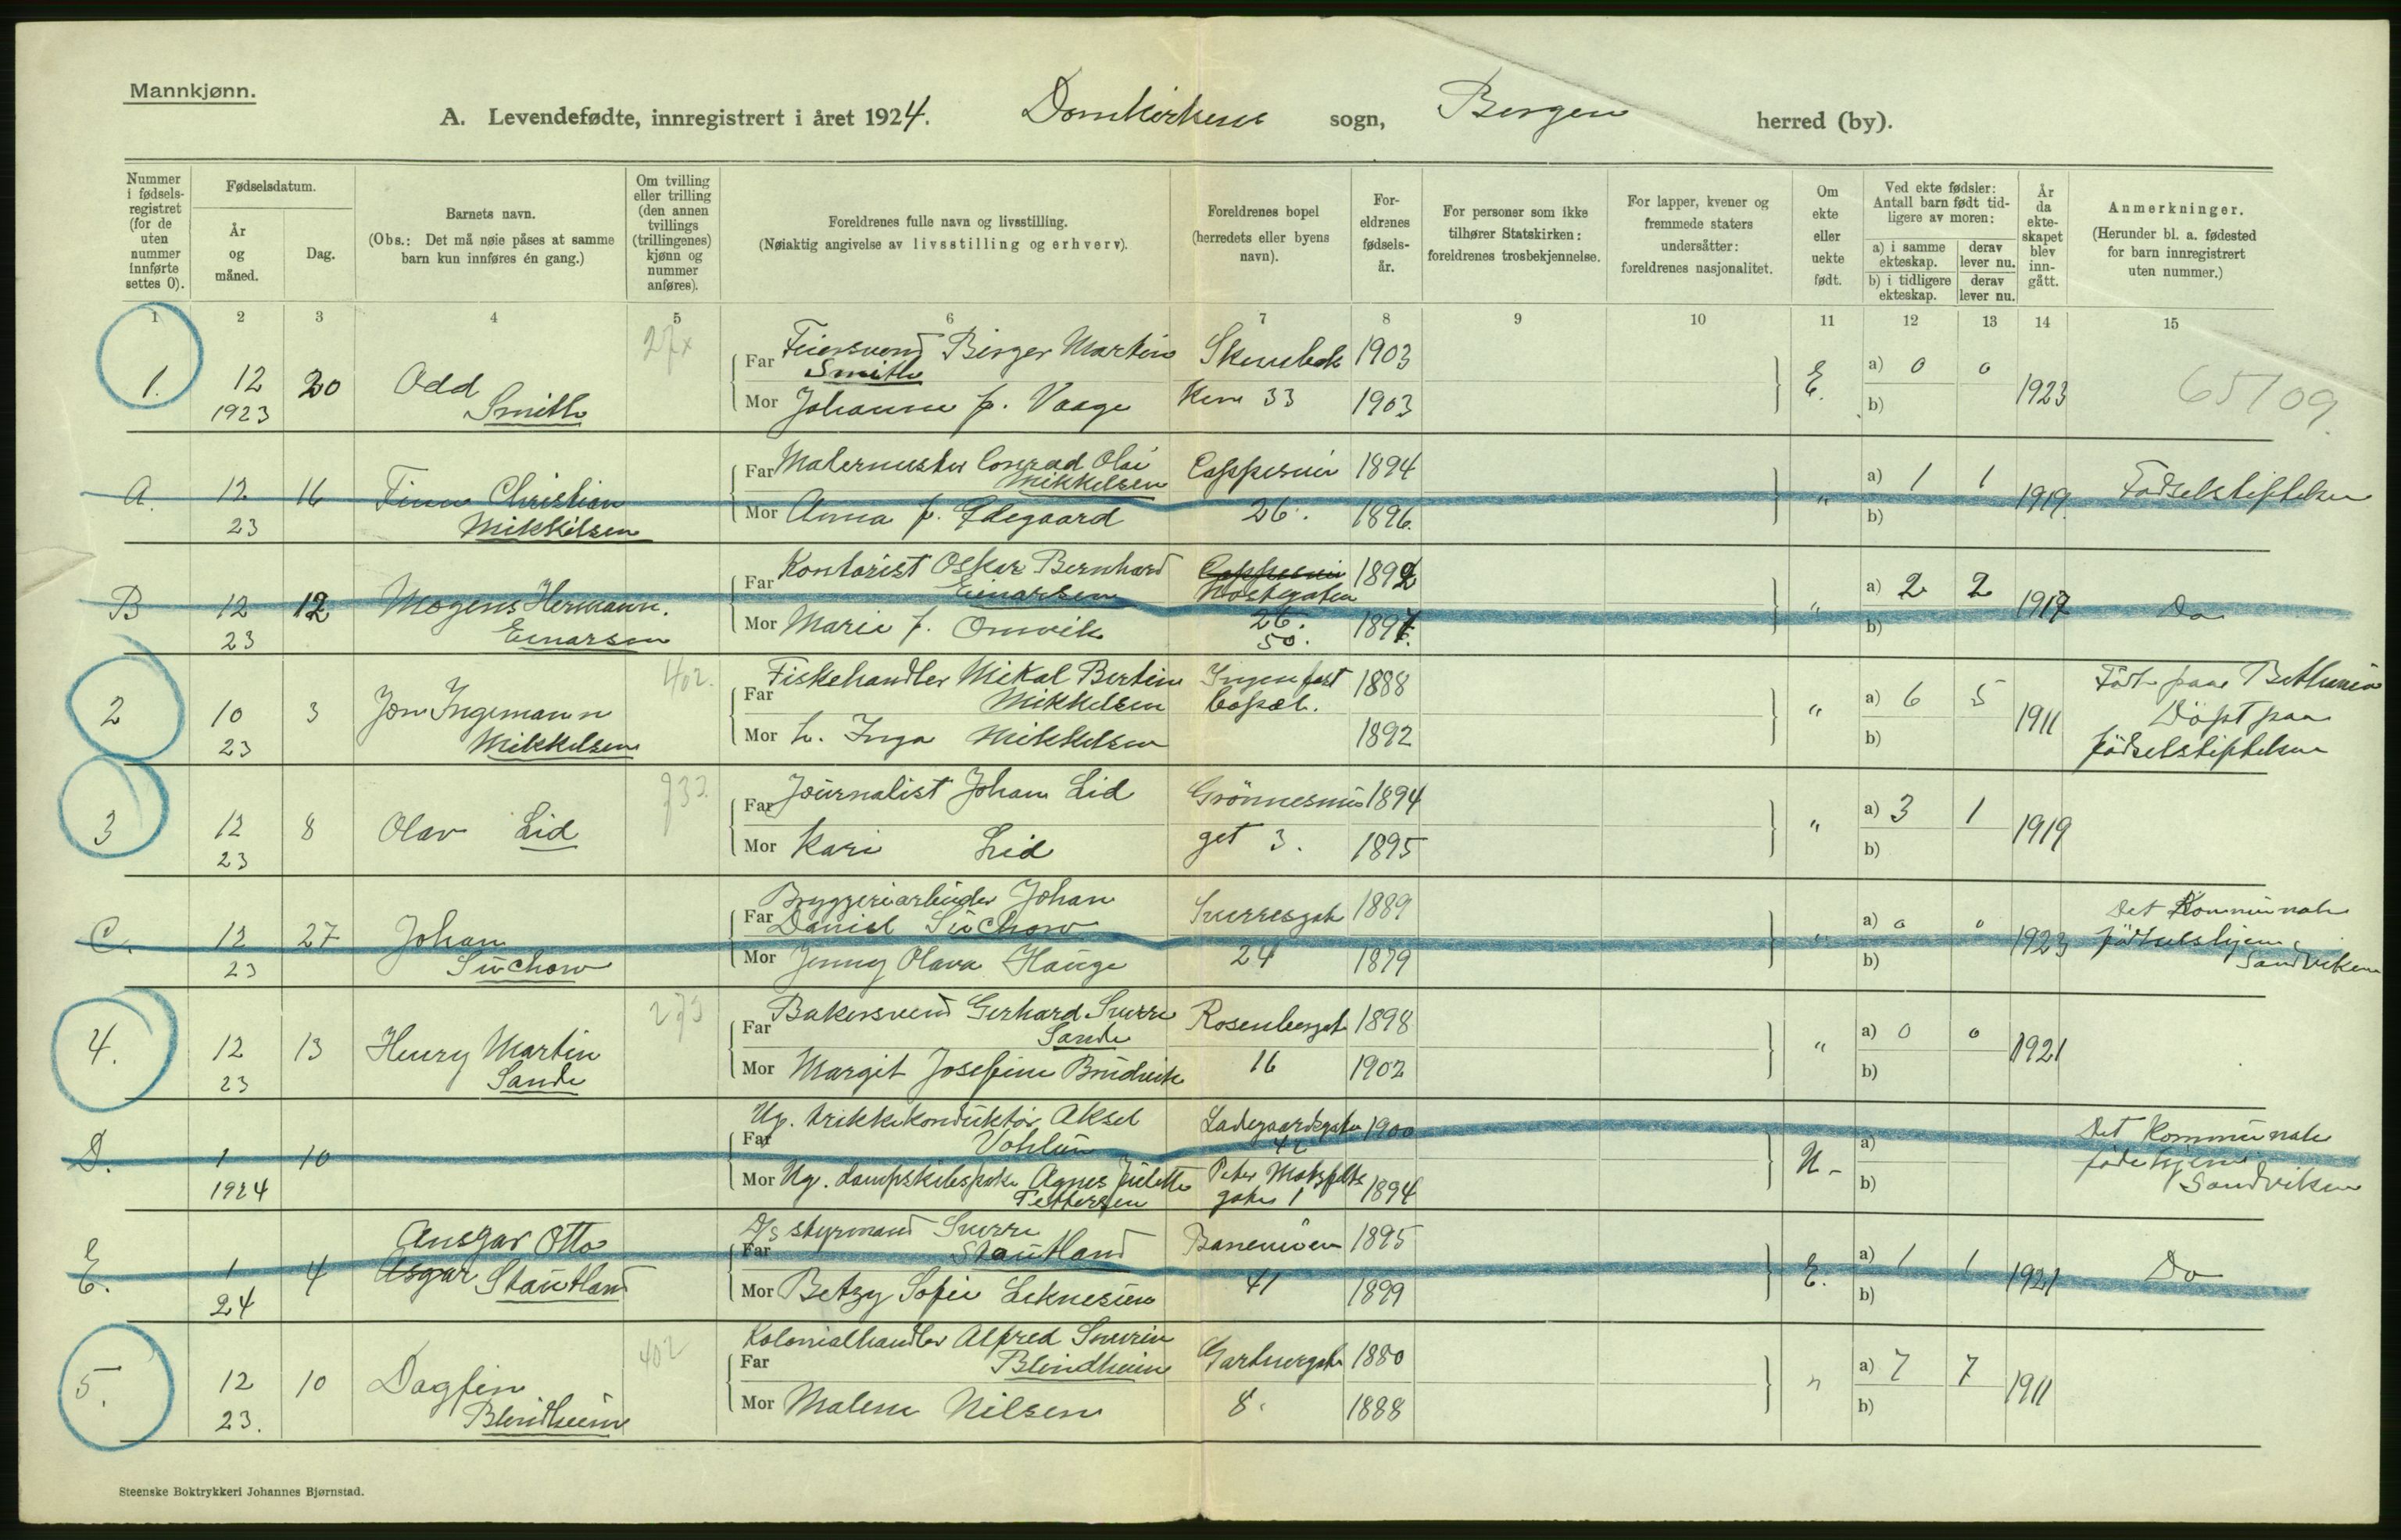 Mannkjønn.
A. Levendefødte, innregistrert i året 1924. Domkirkens sogn, Bergen herred (by).
Nummer i fødselsregistret (for de uten nummer innførte settes 0).
Fødselsdatum.
År og måned.
Dag.
Barnets navn.
(Obs.: Det må nøie påses at samme barn kun innføres én gang.)
Om tvilling eller trilling (den annen tvillings (trillingenes) kjønn og nummer anføres).
Foreldrenes fulle navn og livsstilling.
(Nøiaktig angivelse av livsstilling og erhverv).
Foreldrenes bopel (herredets eller byens navn).
Foreldrenes fødselsår.
For personer som ikke tilhører Statskirken: foreldrenes trosbekjennelse.
For lapper, kvener og fremmede staters undersåtter: foreldrenes nasjonalitet.
Om ekte eller uekte født.
Ved ekte fødsler: Antall barn født tidligere av moren:
a) i samme ekteskap. derav lever nu.
b) i tidligere ekteskap. derav lever nu.
År da ekteskapet blev inngått.
Anmerkninger.
(Herunder bl. a. fødested for barn innregistrert uten nummer.)
1 2 3 4 5 6 7 8 9 10 11 12 13 14 15
1. 12 1923 20 Odd Smith
Far Feiersvend Birger Martin Smith 1903
Mor Johanne f. Vaage 33 1903
E. a) 0 0 b) 1923 65109
A. 12 23 16 Finn Christian Mikkelsen
Far Malermester Conrad Olai Mikkelsen 1894
Mor Anna f. Ødegaard 26. 1896.
" a) 1 1 b) 1919. Fødselstiftelsen
B 12 23 12 Mogens Hermann. Einarsen
Far Kontorist Oskar Bernhard Einarsen 1892
Mor Marie f. Onarvik 26. 50. 1897.
" a) 2 2 b) 1917 Do
2 10 23 3 Jon Ingemann Mikkelsen 402.
Far Fiskehandler Mikal Bertin Mikkelsen Ingen fast bopæl. 1888
Mor L. Inga Mikkelsen 1892
" a) 6 5 b) 1911 Født paa Bethania Döpt paa födselstiftelsen
3 12 23 8 Olav Lid
Far Journalist Johan Lid 1894
Mor Kari Lid 3. 1895
" a) 3 1 b) 1919
C. 12 23 27 Johan Süchow
Far Bryggeriarbeider Johan Daniel Süchow Sverresgate 1889
Mor Jenny Olava Hauge 24 1879
" a) 0 0 b) 1923 Det Kommunale födselshjem, Sandviken
4. 12 23 13 Henry Martin Sande 273
Far Bakersvend Gerhard Sverre Sande Rosenbergst 1898
Mor Margit Josefine Brudvik 16 1902
" a) 0 0 b) 1921
D. 1 1924 10
Far Ug. trikkekonduktör Aksel Ladegaardsgaten 42 1900
Mor Ug. Agnes Juliette Pettersen Peter Motzfeldts gate 1 1894
U- a) b) Det Kommunale fødehjem Sandviken
E. 1 24 4 Ansgar Otto Asgar Stautland
Far D/s styrmand Sverre Stautland 1895
Mor Betzy Sofie Leknesund 41 1899
E. a) 1 1 b) 1921 Do
5. 12 23. 10 Dagfin Blindheim 402
Far Kolonialhandler Alfred Severin Blindheim 1880
Mor Malene Nilsen 8. 1888
" a) 7 7 b) 1911
Steenske Boktrykkeri Johannes Bjørnstad.